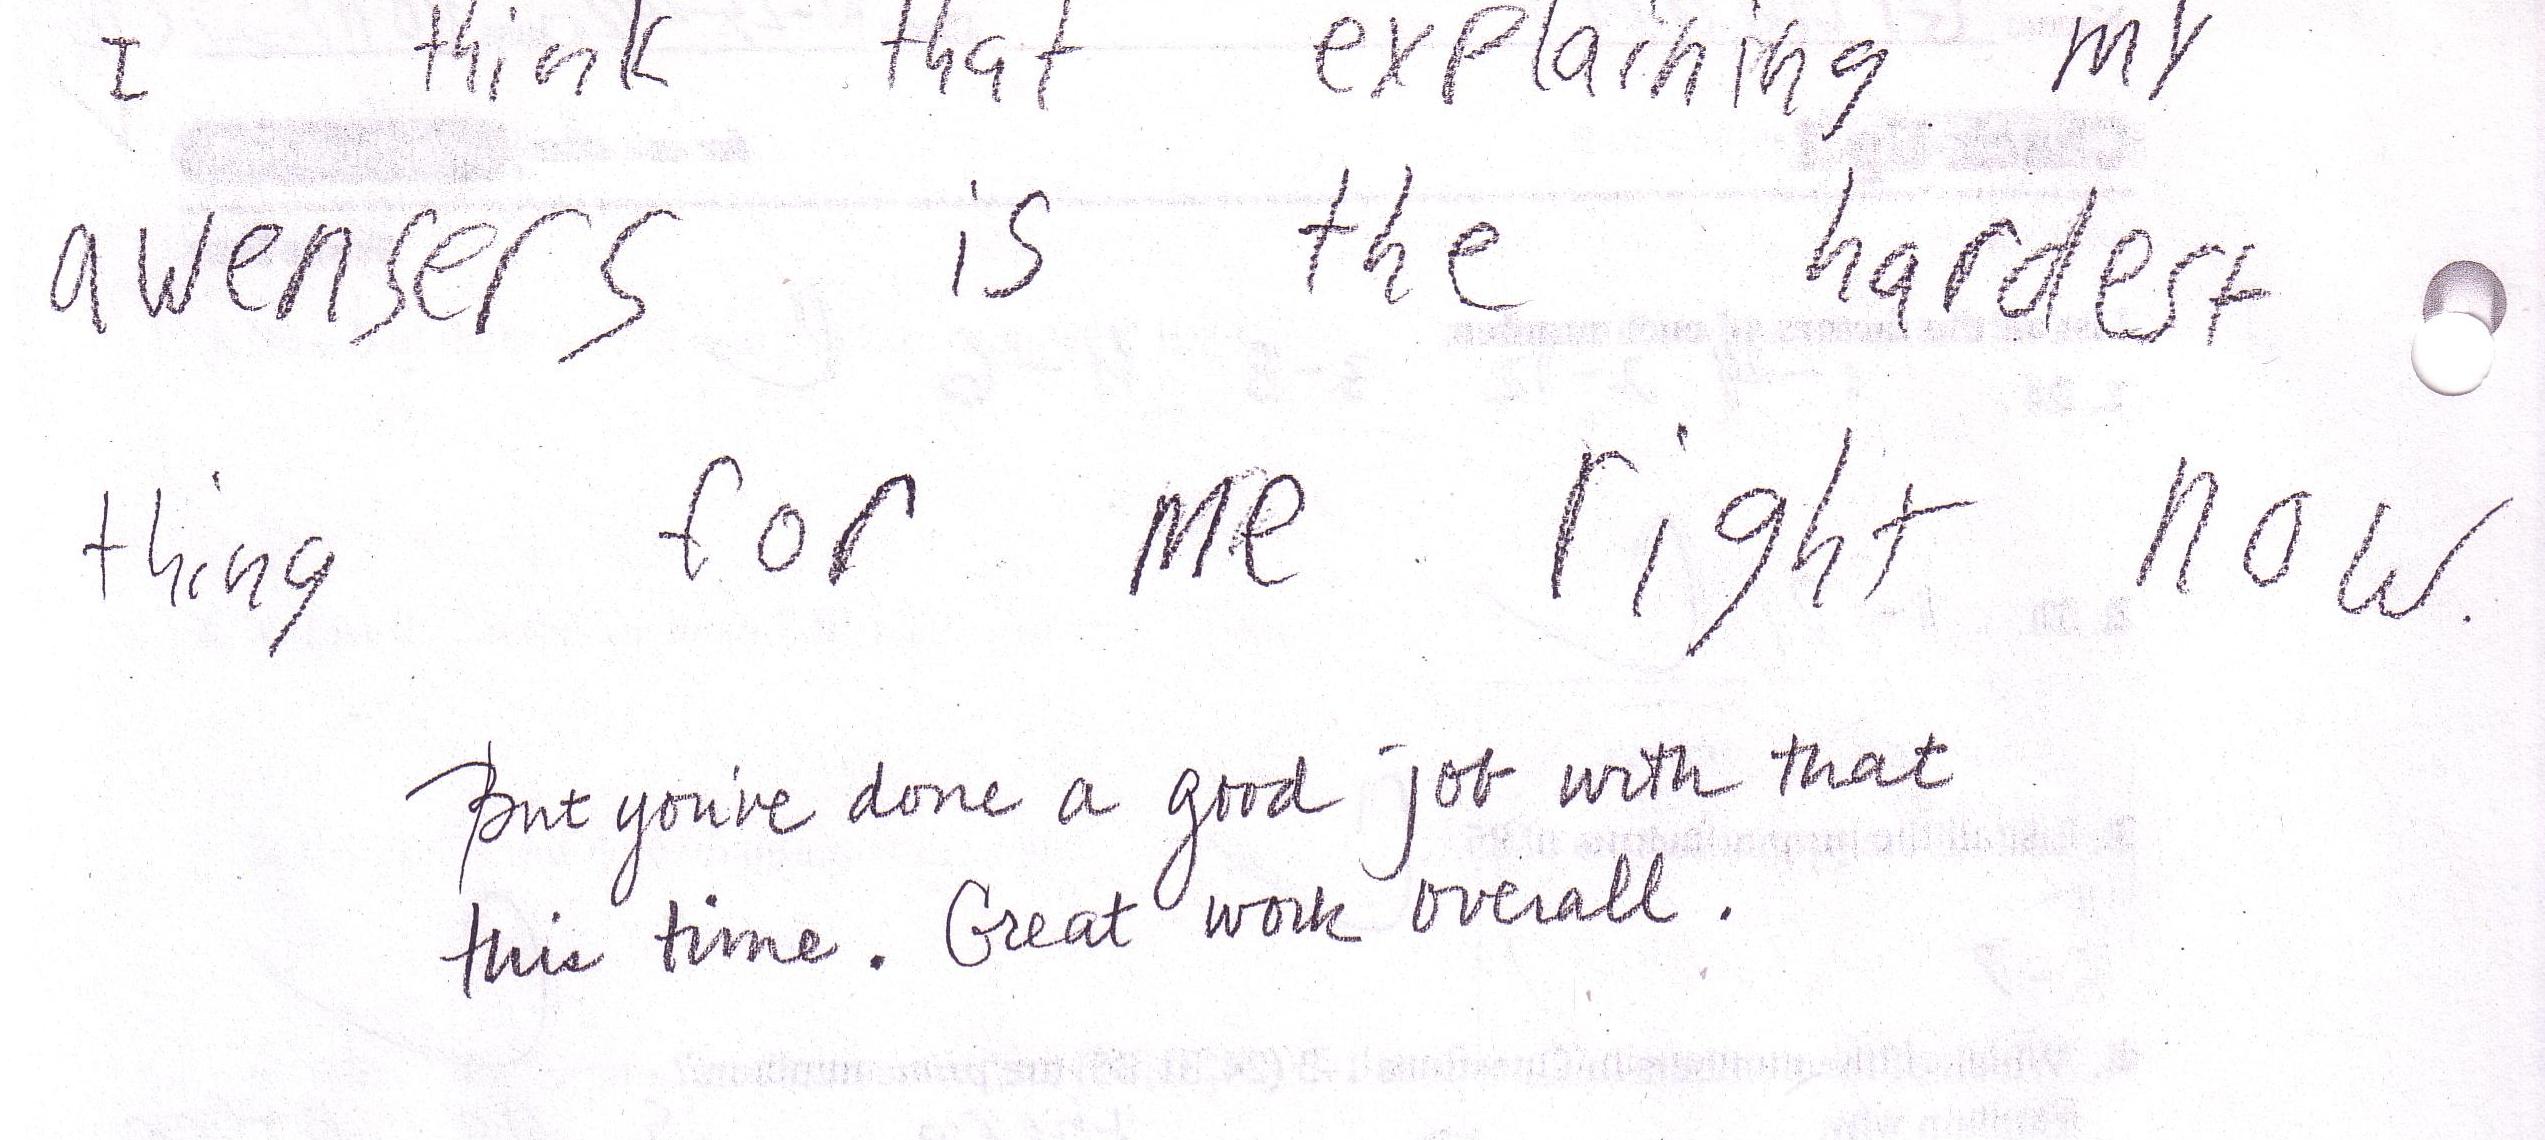 I think that explaining my
awensers is the hardest
thing for me right now.
But you've done a good job with that
this time. Great work overall.